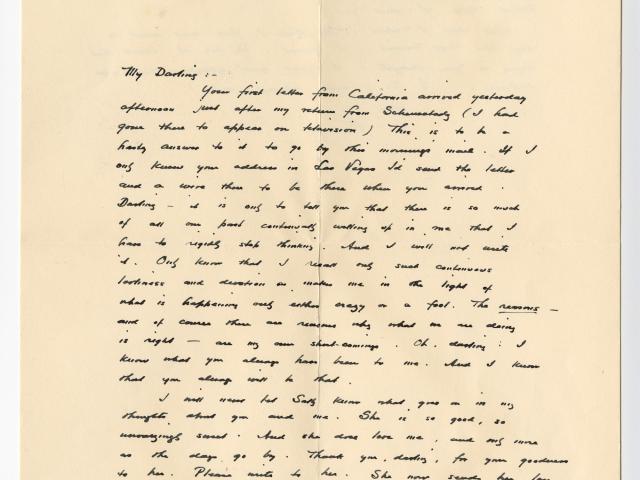 My Darling :-
Your first letter from California arrived yesterday
afternoon just after my return from Schenectady ( I had
gone there to appear on television ) This is to be a
hasty answer to it to go by this morning's mail. If I
only knew your address in Las Vegas I'd send the letter
and a wire there to be there when you arrived.
Darling - it is only to tell you that there is so much
of all our past continually welling up in me that I
have to rigidly stop thinking. And I will not write
it. Only know that I recall only such continuous
loveliness and devotion as makes me in the light of
what is happening only either crazy or a fool. The reasons -
and of course there are reasons why what we are doing
is right - are my own short-comings. Oh, darling: I
know what you always have been to me. And I know
that you always will be that.
I will never let Sally know what goes on in my
thoughts about you and me. She is so good, so
unvaryingly sweet. And she does love me, and only more
as the days go by. Thank you, darling, for your goodness
to her. Please write to her. She now sends her love